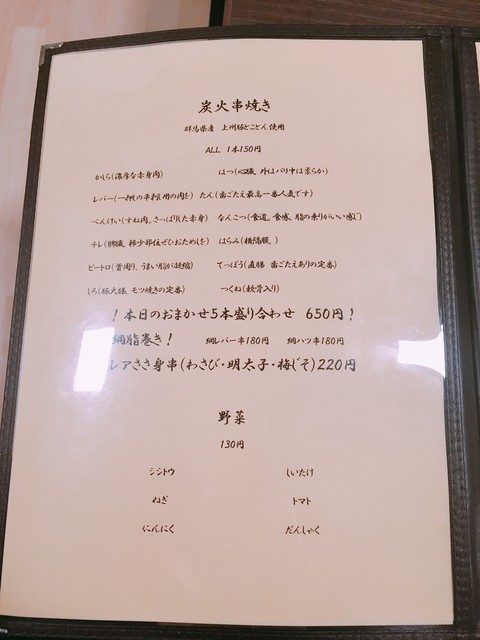 炭火串焼き
群馬県産 上州豚とことん使用
ALL 1本150円
かしら(濃厚な赤身肉) はつ(心臓 外はパリ中は柔らか)
レバー(一押の串物用の肉を) たん(歯ごたえ最高一番人気です)
べんけい(すね肉。さっぱりした赤身) なんこつ(食道。食感、脂の乗りがいい感じ)
チレ(脾臓 稀少部位ぜひおためしを) はらみ(横隔膜。)
ピートロ(首周り、うまい脂が凝縮) てっぽう(直腸 歯ごたえありの定番)
しろ(豚大腸 モツ焼きの定番) つくね(軟骨入り)
!本日のおまかせ5本盛り合わせ 650円!
網脂巻き! 網レバー串180円 網ハツ串180円
レアささ身串(わさび・明太子・梅じそ)220円
野菜
130円
シシトウ しいたけ
ねぎ トマト
にんにく だんしゃく